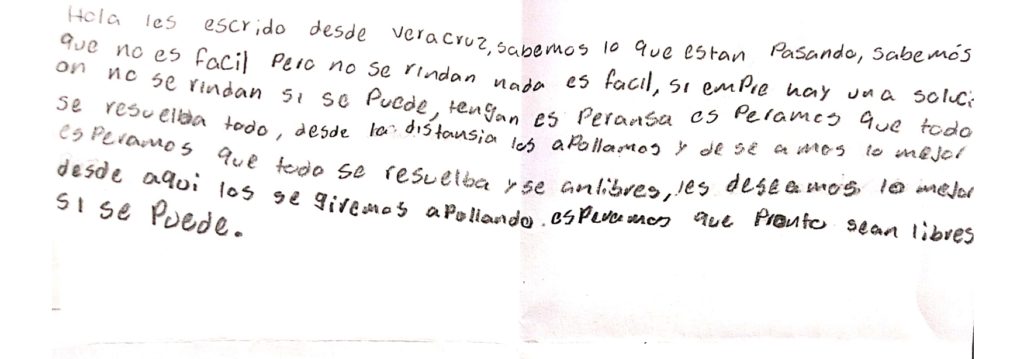 Hola les escrido desde veracruz, sabemos lo que estan Pasando, sabemós
que no es facil Pero no se rindan nada es facil, si emPre hay una soluci
on no se rindan si se Puede, tengan es Peransa es Peramos que todo
se resuelba todo, desde la distansia los aPollamos y de se a mos lo mejor
es Peramos que todo se resuelba y se anlibres, les deseamos lo mejor
desde aqui los se giremos aPollando. esPeramos que Pronto sean libres
si se Puede.